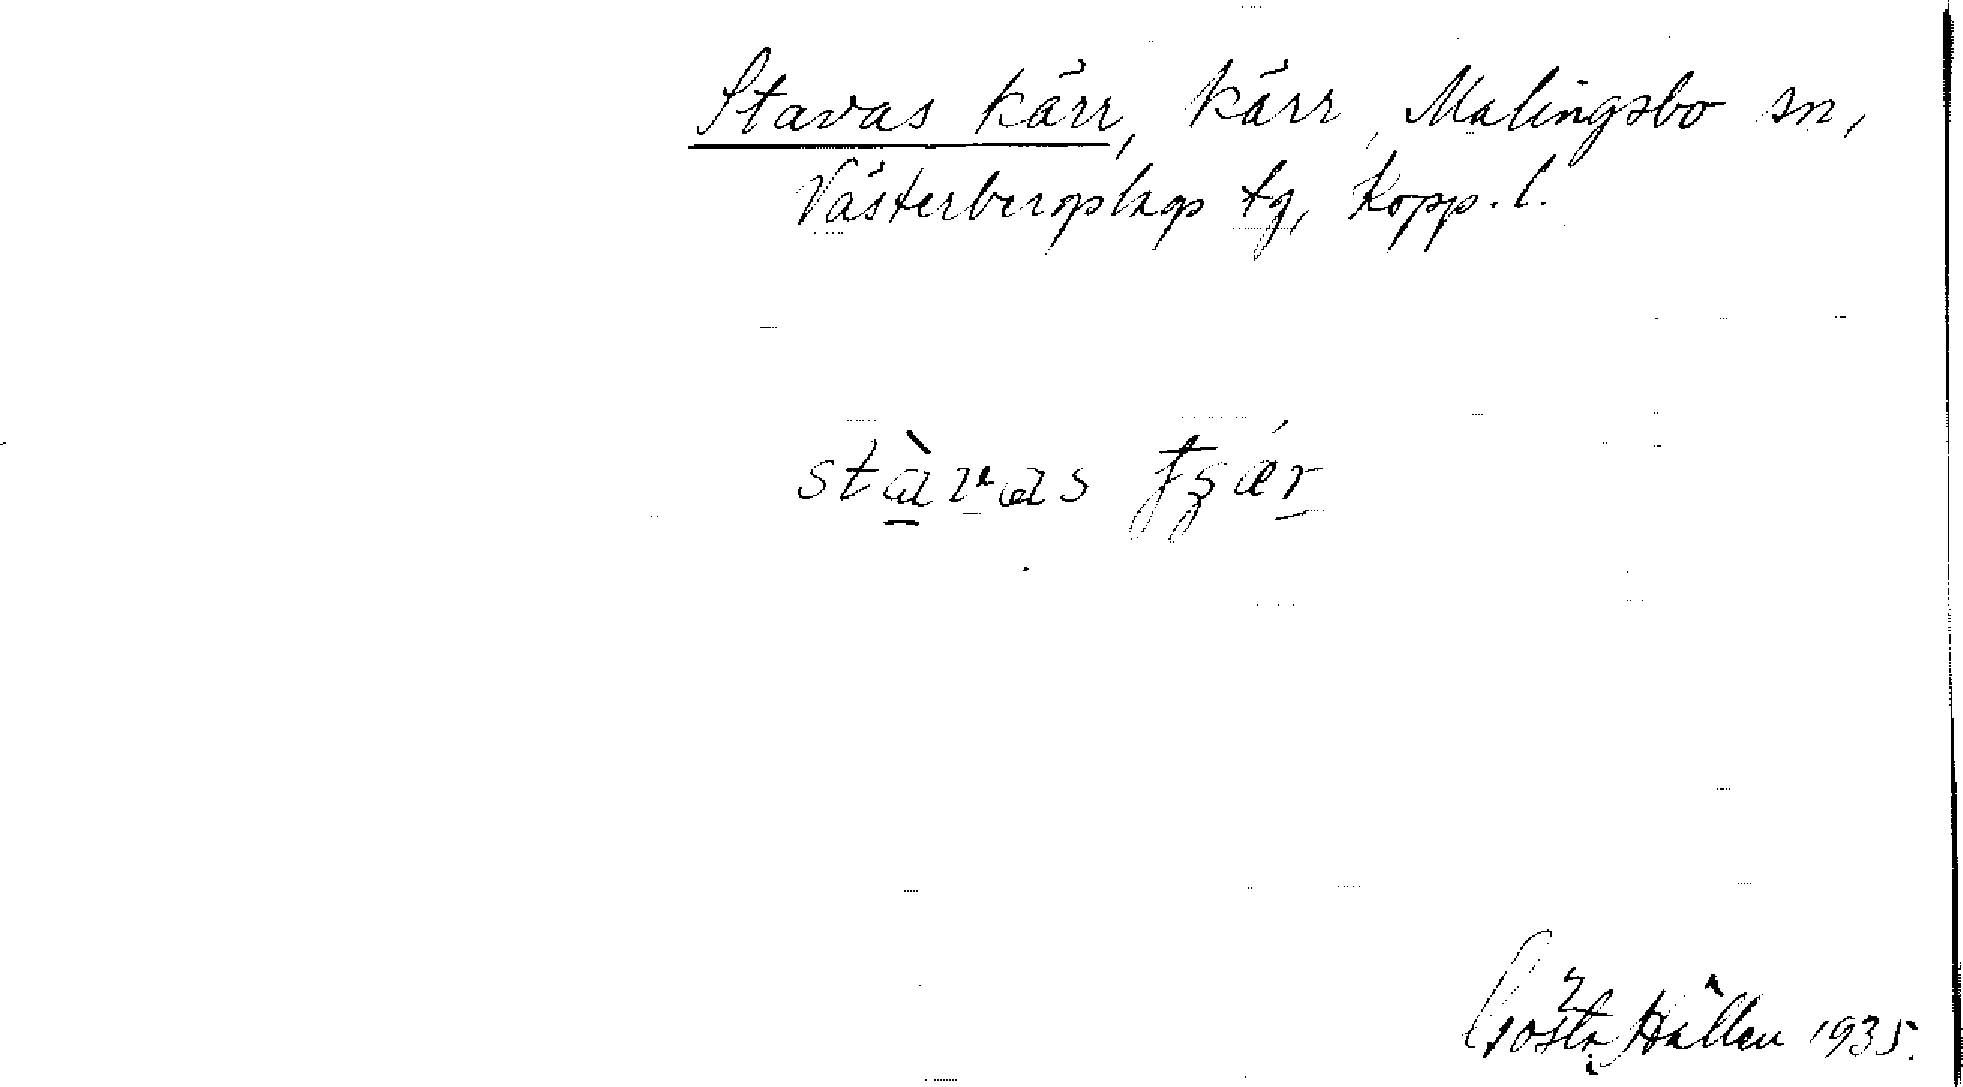 Stavas kärr, kärr, Malingsbo sn,
Västerbergslags tg, Kopp. l.
stàvas
Gösta Hallen 1935.